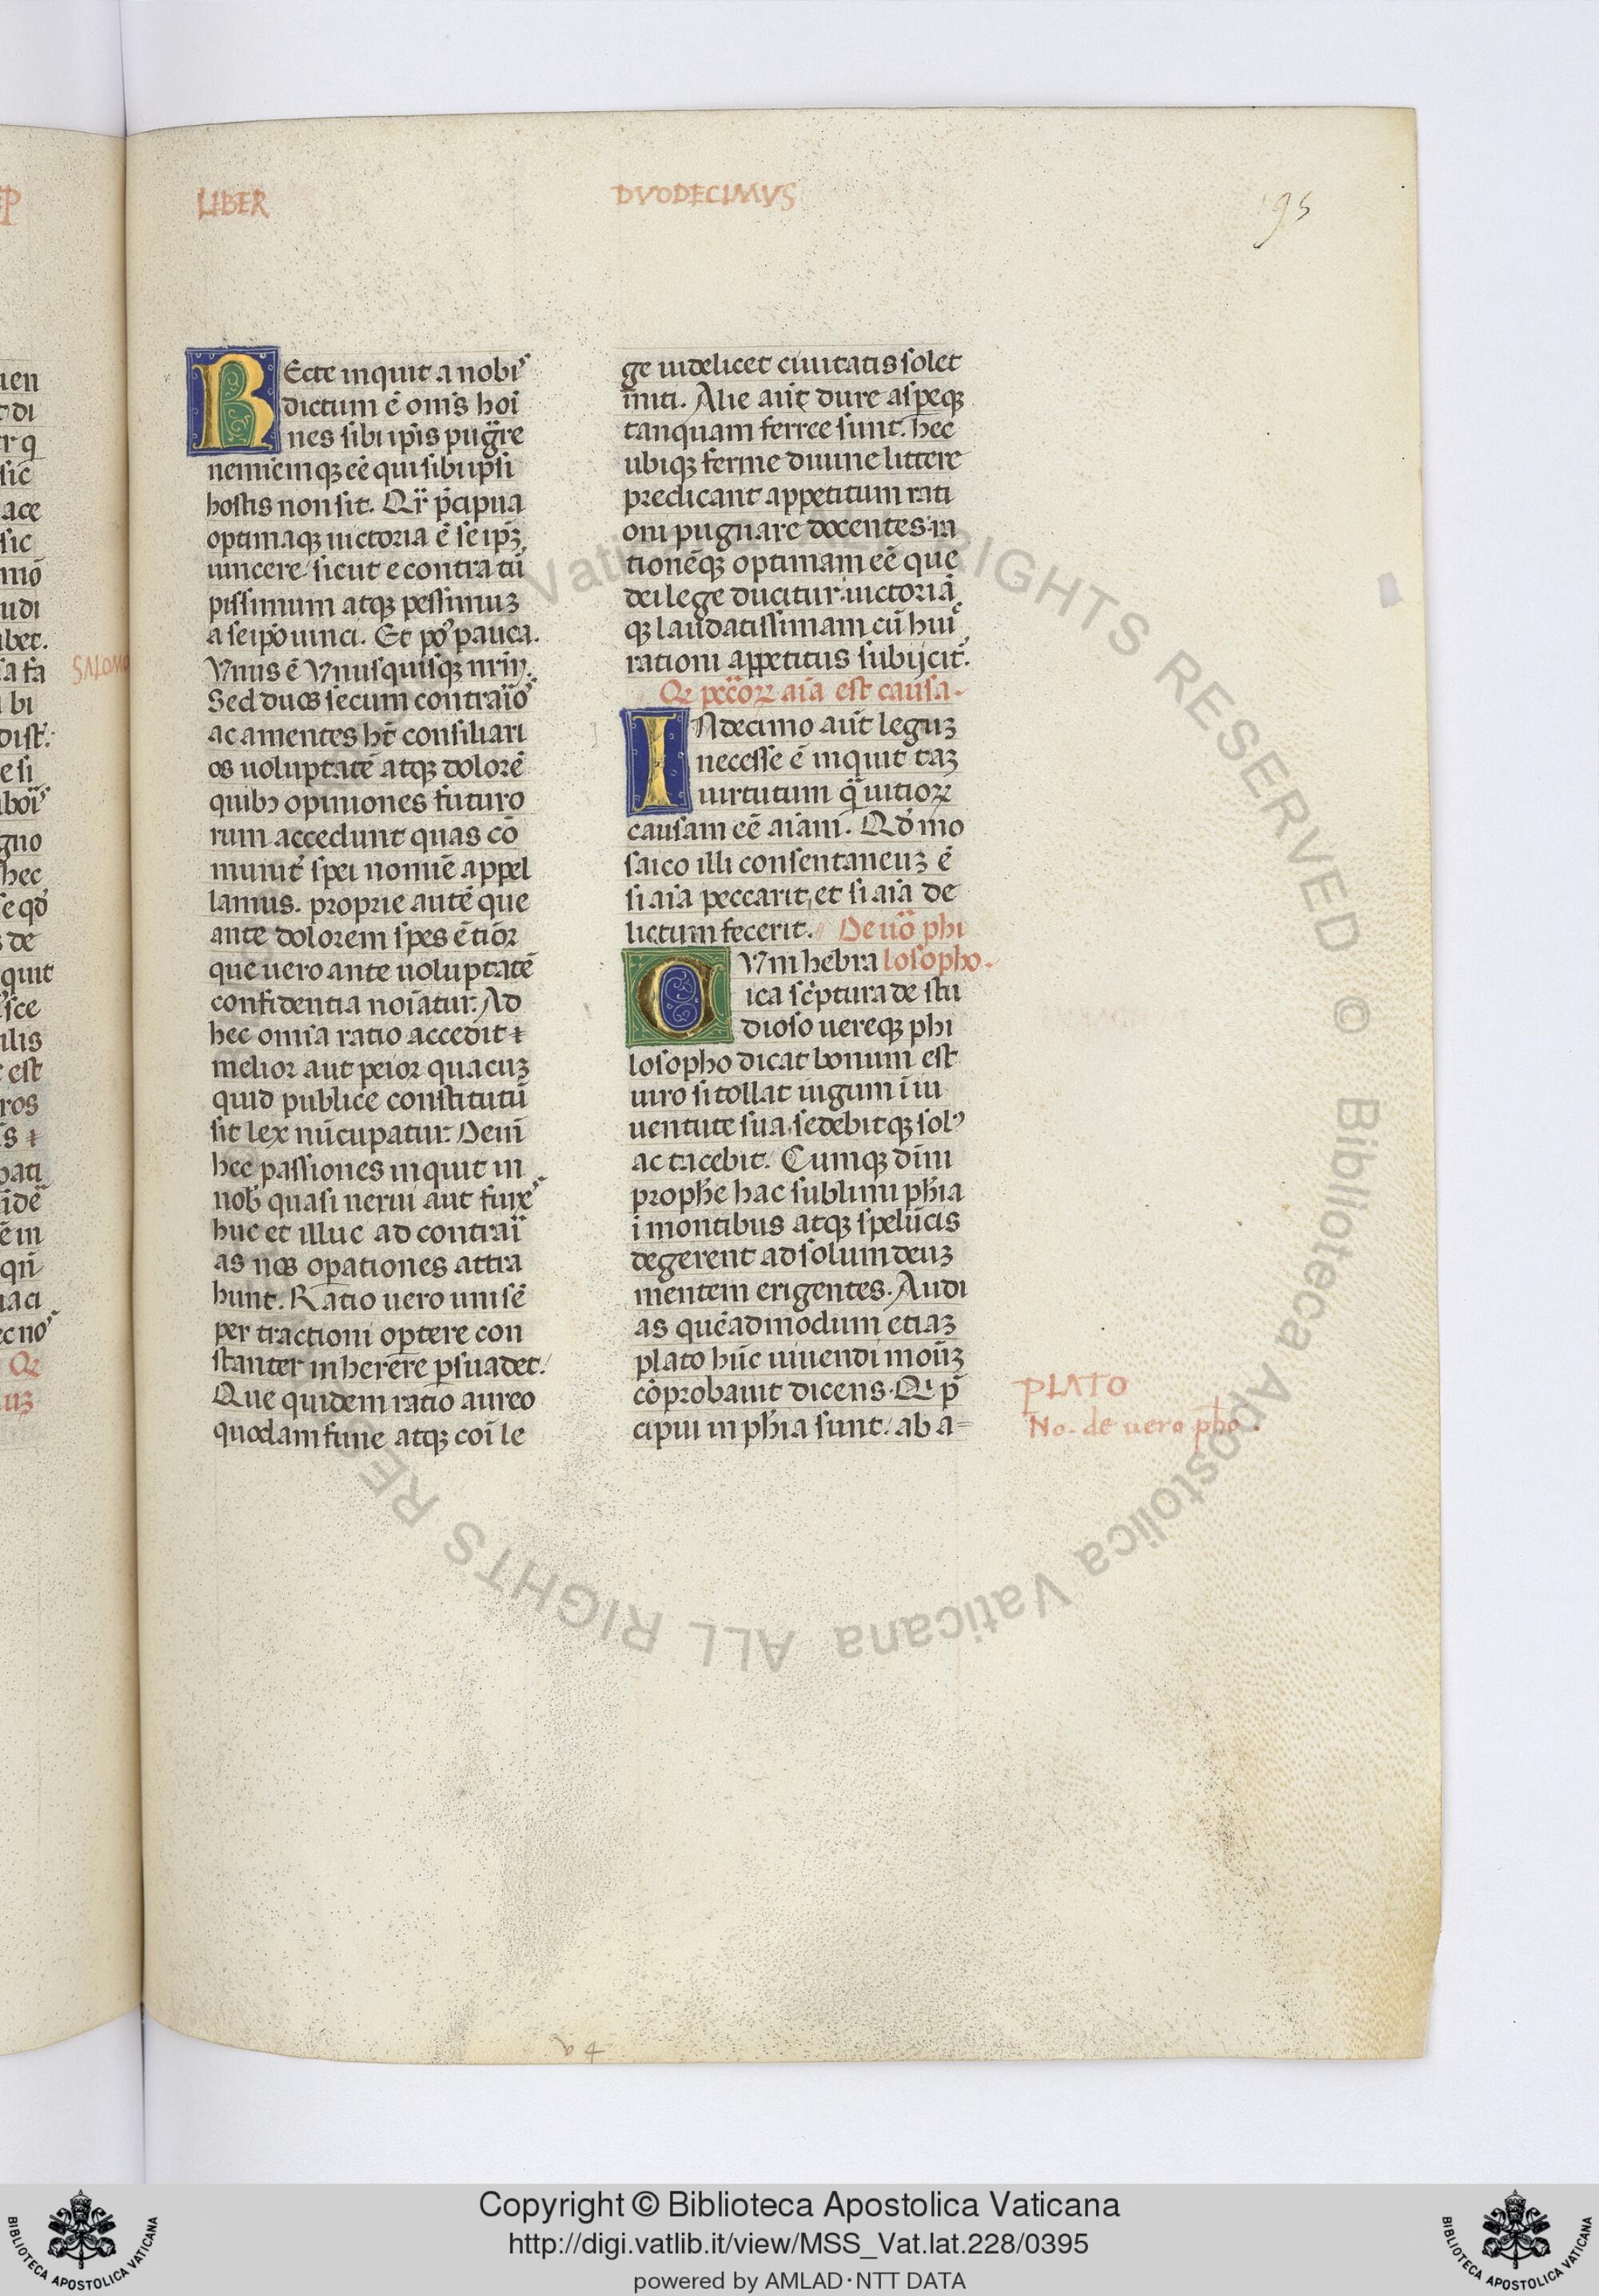 LIBER
DVODECIMVS
195
REcte inquit a nobiˢ
dictum ē om̄s hoī
nes sibi ip̄is pugr̄e
nemiēmqꝫ eē qui sibi ip̄si
hostis non sit. Qr̄ p̄cipua
optimaqꝫ uictoria ē seip̄ꝫ
uincere/ sicut econtra tū
pissimum atqꝫ pessimuꝫ
a seip̄o uinci. Et poˢ pauca.
Vnus ē Vnusquisqꝫ nr̄ꝝ.
Sed duos secum contrai̅oˢ
ac amentes hn̄t consiliari
os uoluptatē atqꝫ dolorē
quibꝫ opiniones futuro
rum accedunt quas cō
munit᷑ spei nomīe appel
lamus. proprie autē que
ante dolorem spes ē tiōꝛ
que uero ante uoluptatē
confidentia noīatur. Ad
hec omīa ratio accedit ⁊
melior aut peior quacuꝫ
quid publice constitutū
sit lex nūcupatur. Deniͫ
hec passiones inquit in
nobˢ quasi nerui aut funeˢ
huc et illuc ad contrai̅
as nos oꝑationes attra
hunt. Ratio uero uni sē
per tractioni oꝑtere con
stanter inherere ꝑsuadet.
Que quidem ratio aureo
quodam fune atqꝫ coī le
ge uidelicet ciuitatis solet
īniti. Alie aūt dure aspeqꝫ
tanquam ferree sunt. hec
ubiqꝫ ferme diuine littere
predicant appetitum rati
oni pugnare docentes: ra
tionēqꝫ optimam eē que
dei lege ducitur: uictoriā
qꝫ laudatissimam cū huiˢ
rationi appetitus subijcit᷑.
Qꝫ pēcoꝝ aīa est causa.
INdecimo aūt leguꝫ
necesse ē inquit taꝫ
uirtutum q̄ uitioꝝ
causam eē aīam. Qd̄ mo
saico illi consentaneuꝫ ē
si aīa peccarit, et si aīa de
lictum fecerit. De uo̅ phi
CVm hebra losopho.
ica sc̄ptura de stu
dioso uereqꝫ phi
losopho dicat bonum est
uiro si tollat iugum ī iu
uentute sua, sedebitqꝫ solꝰ
ac tacebit. Cumqꝫ dīni
prophē hac sublimi ph̄ia
ī montibus atqꝫ spelūcis
degerent ad solum deuꝫ
mentem erigentes. Audi
as quēadmodum etiaꝫ
plato hūc uiuendi moūꝫ
cōprobauit dicens. Qꝫ p̄
cipui in ph̄ia sunt: ab a=
PLATO
No. de uero ph̄o.
Copyright © Biblioteca Apostolica Vaticana
http://digi.vatlib.it/view/MSS_Vat.lat.228/0395
powered by AMLAD·NTT DATA
BIBLIOTECA APOSTOLICA VATICANA
BIBLIOTECA APOSTOLICA VATICANA